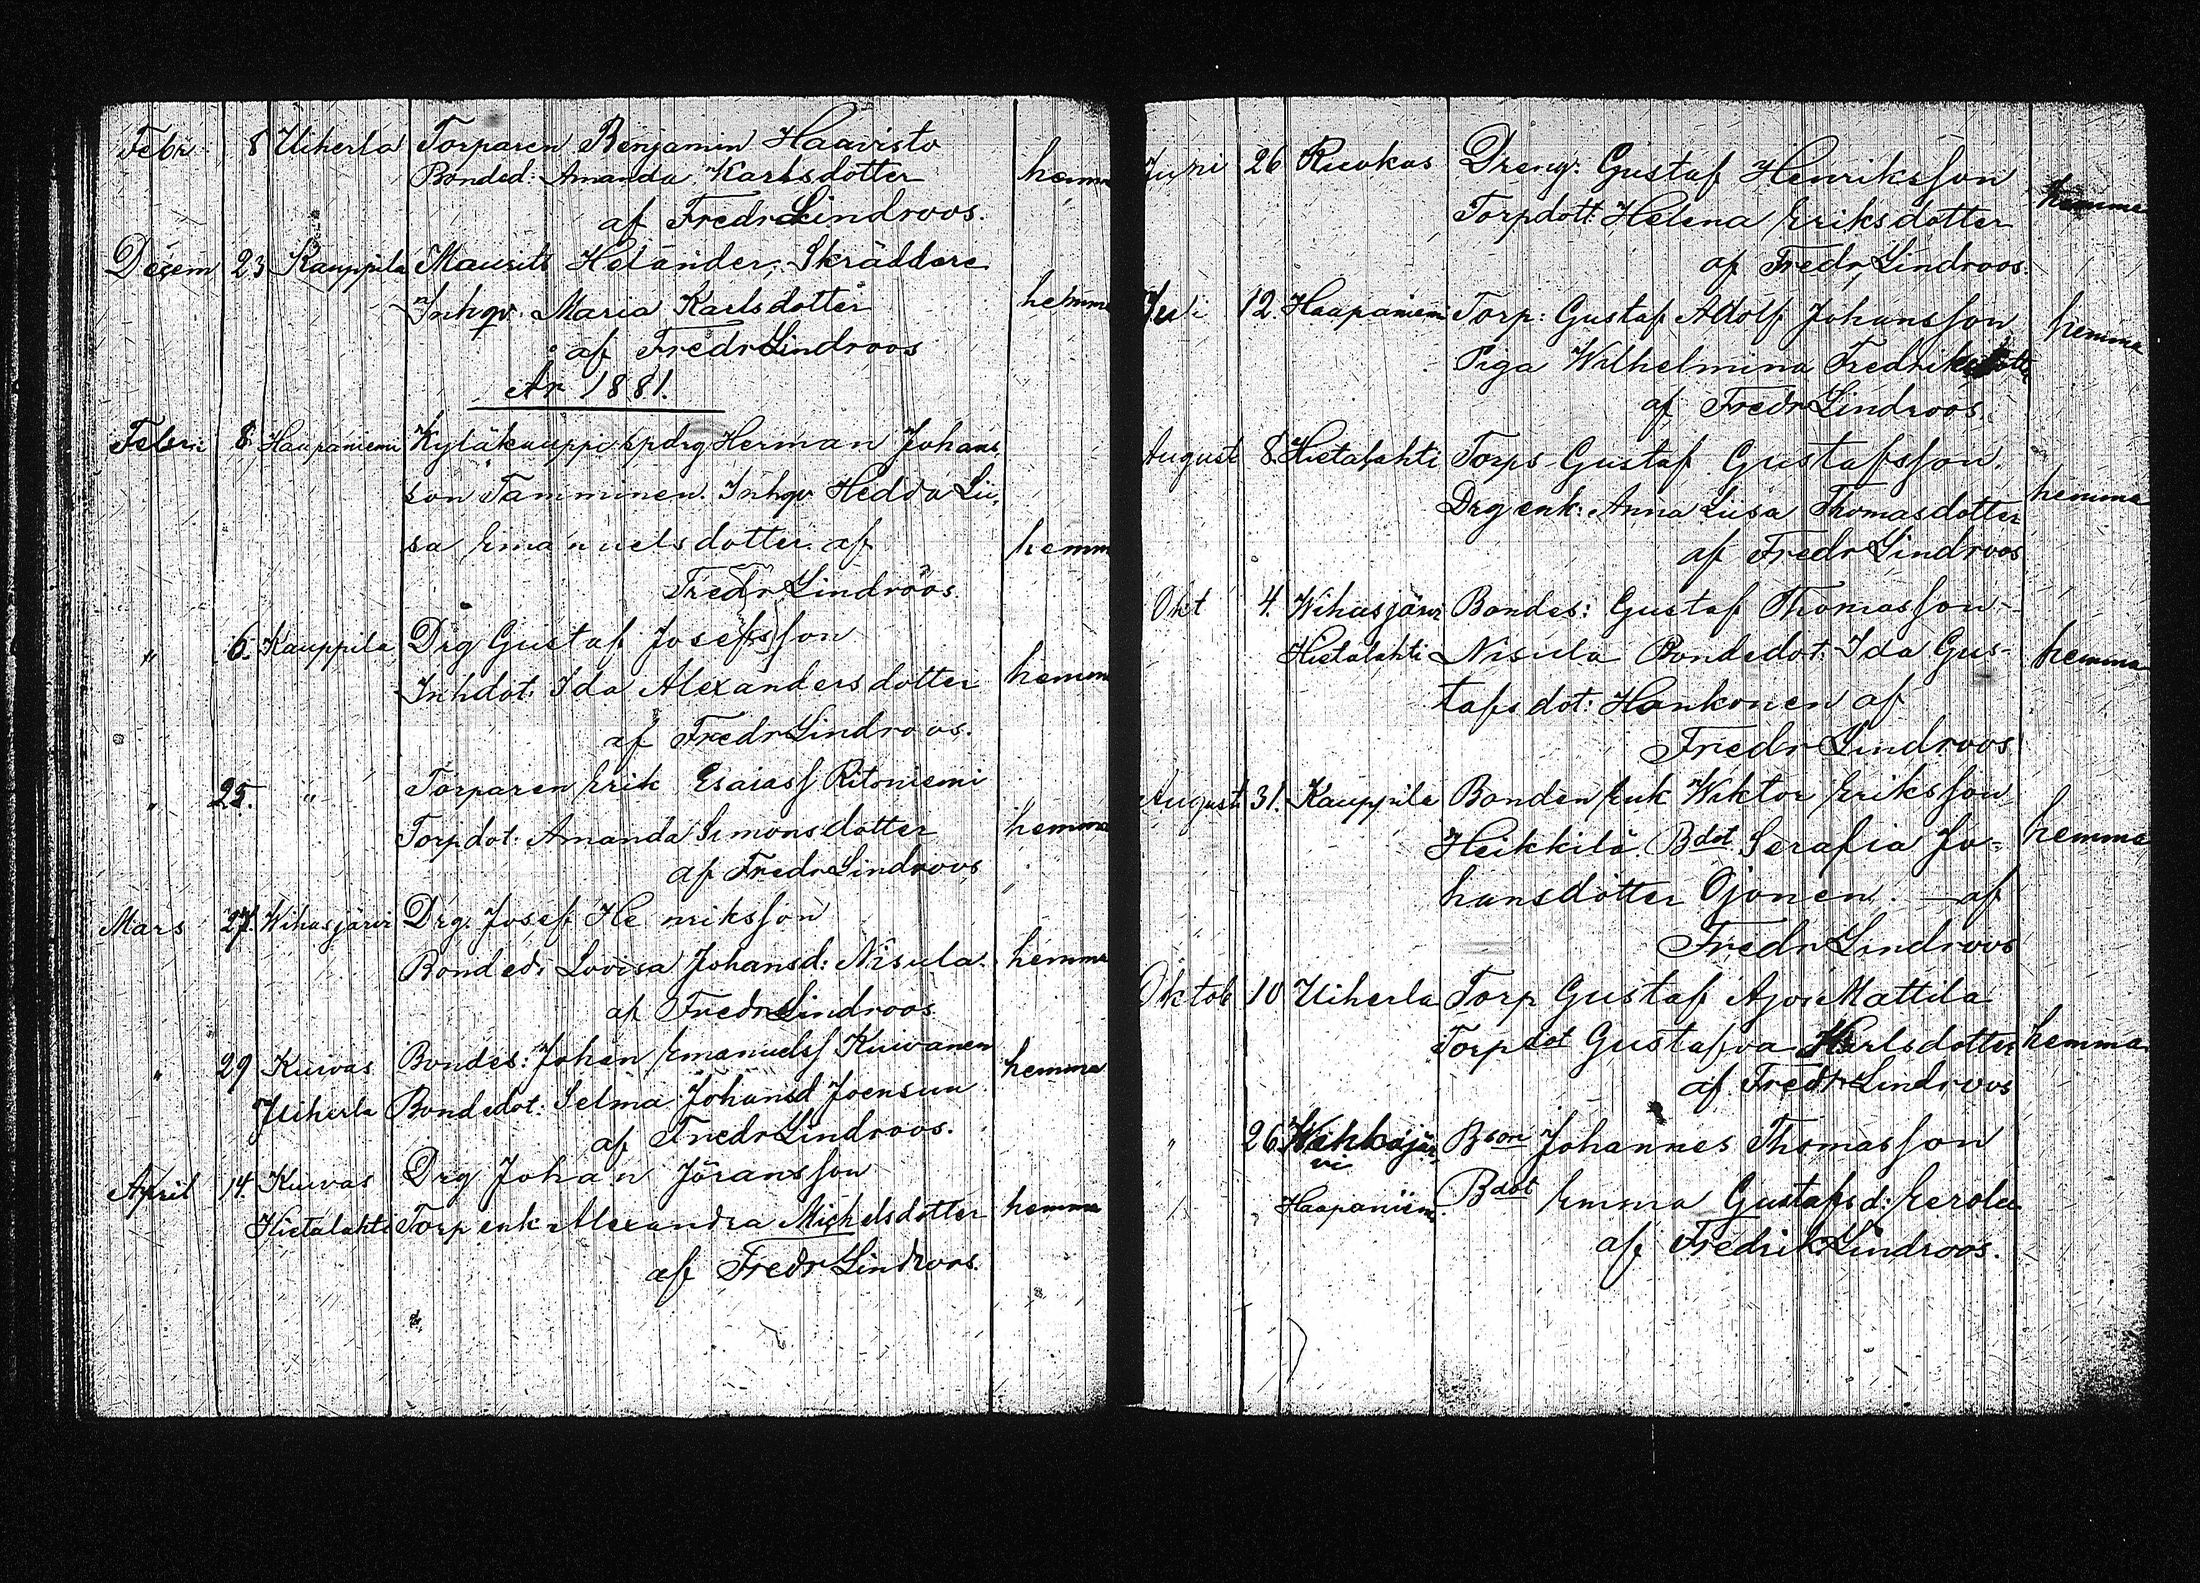 Febr 8 Uiherla Torparen Benjamin Haavisto
Bonded: Amanda Karlsdotter hemma
af Fredr Lindroos.
Decem 23 Kauppila Maurits Helander, Skräddare
Inhqv. Maria Karlsdotter hemma
af Fredr Lindroos
År 1881.
Febr: 8 Haapaniemi Kyläkauppi spdrg Herman Johans
son Tamminen. Inhqv Hedda Lii
sa Emanuelsdotter. af hemm
Fredr Lindroos.
" 6. Kauppila Drg Gustaf Josefsson
Inhdot: Ida Alexandersdotter hemm
af Fredr Lindroos.
" 25. " Torparen Erik Esaiass Ritoniemi
Torpdot: Amanda Simonsdotter hemma
af Fredr Lindroos
Mars 27. Wihasjärvi Drg. Josef Henriksson
Bonded: Lovisa Johansd: Nisula. hemma
af Fredr Lindroos
" 29 Kuivas Bondes: Johan Emanuelss Kuivanen hemma
Uiherla Bondedot: Selma Johansd Joensuu
af Fredr Lindroos.
April 14. Kuivas Drg Johan Jöransson
Hietalahti Torp enk Alexandra Michelsdotter hemma
af Fredr Lindroos.
Juni 26 Ruokas Dreng: Gustaf Henriksson
Torpdott Helena Eriksdotter hemma
af Fredr Lindroos.
Juli 12. Haapaniemi Torp: Gustaf Adolf Johansson hemma
Piga Wilhelmina Fredriksdotter
af Fredr Lindroos
August 8. Hietalahti Torps Gustaf Gustafsson.
Drg enk: Anna Liisa Thomasdotter hemma
af Fredr Lindroos
Okt 4. Wihasjärvi Bondes: Gustaf Thomasson
Hietalahti Nisula Bondedot: Ida Gus- hemma
tafsdot: Hankonen af
Fredr Lindroos
August 31. Kauppila Bonden Enk Wiktor Eriksson
Heikkilä. Bdot Serafia Jo= hemma
hansdotter Ojonen. — af
Fredr Lindroos
Oktob 10 Uiherla Torp Gustaf Mattila
Torpdot Gustafva Karlsdotter hemma
af Fredr Lindroos
" 26 Bson Johannes Thomasson
" Haapaniemi Bdot Emma Gustafsd: Eerola
af Fredrik Lindroos.